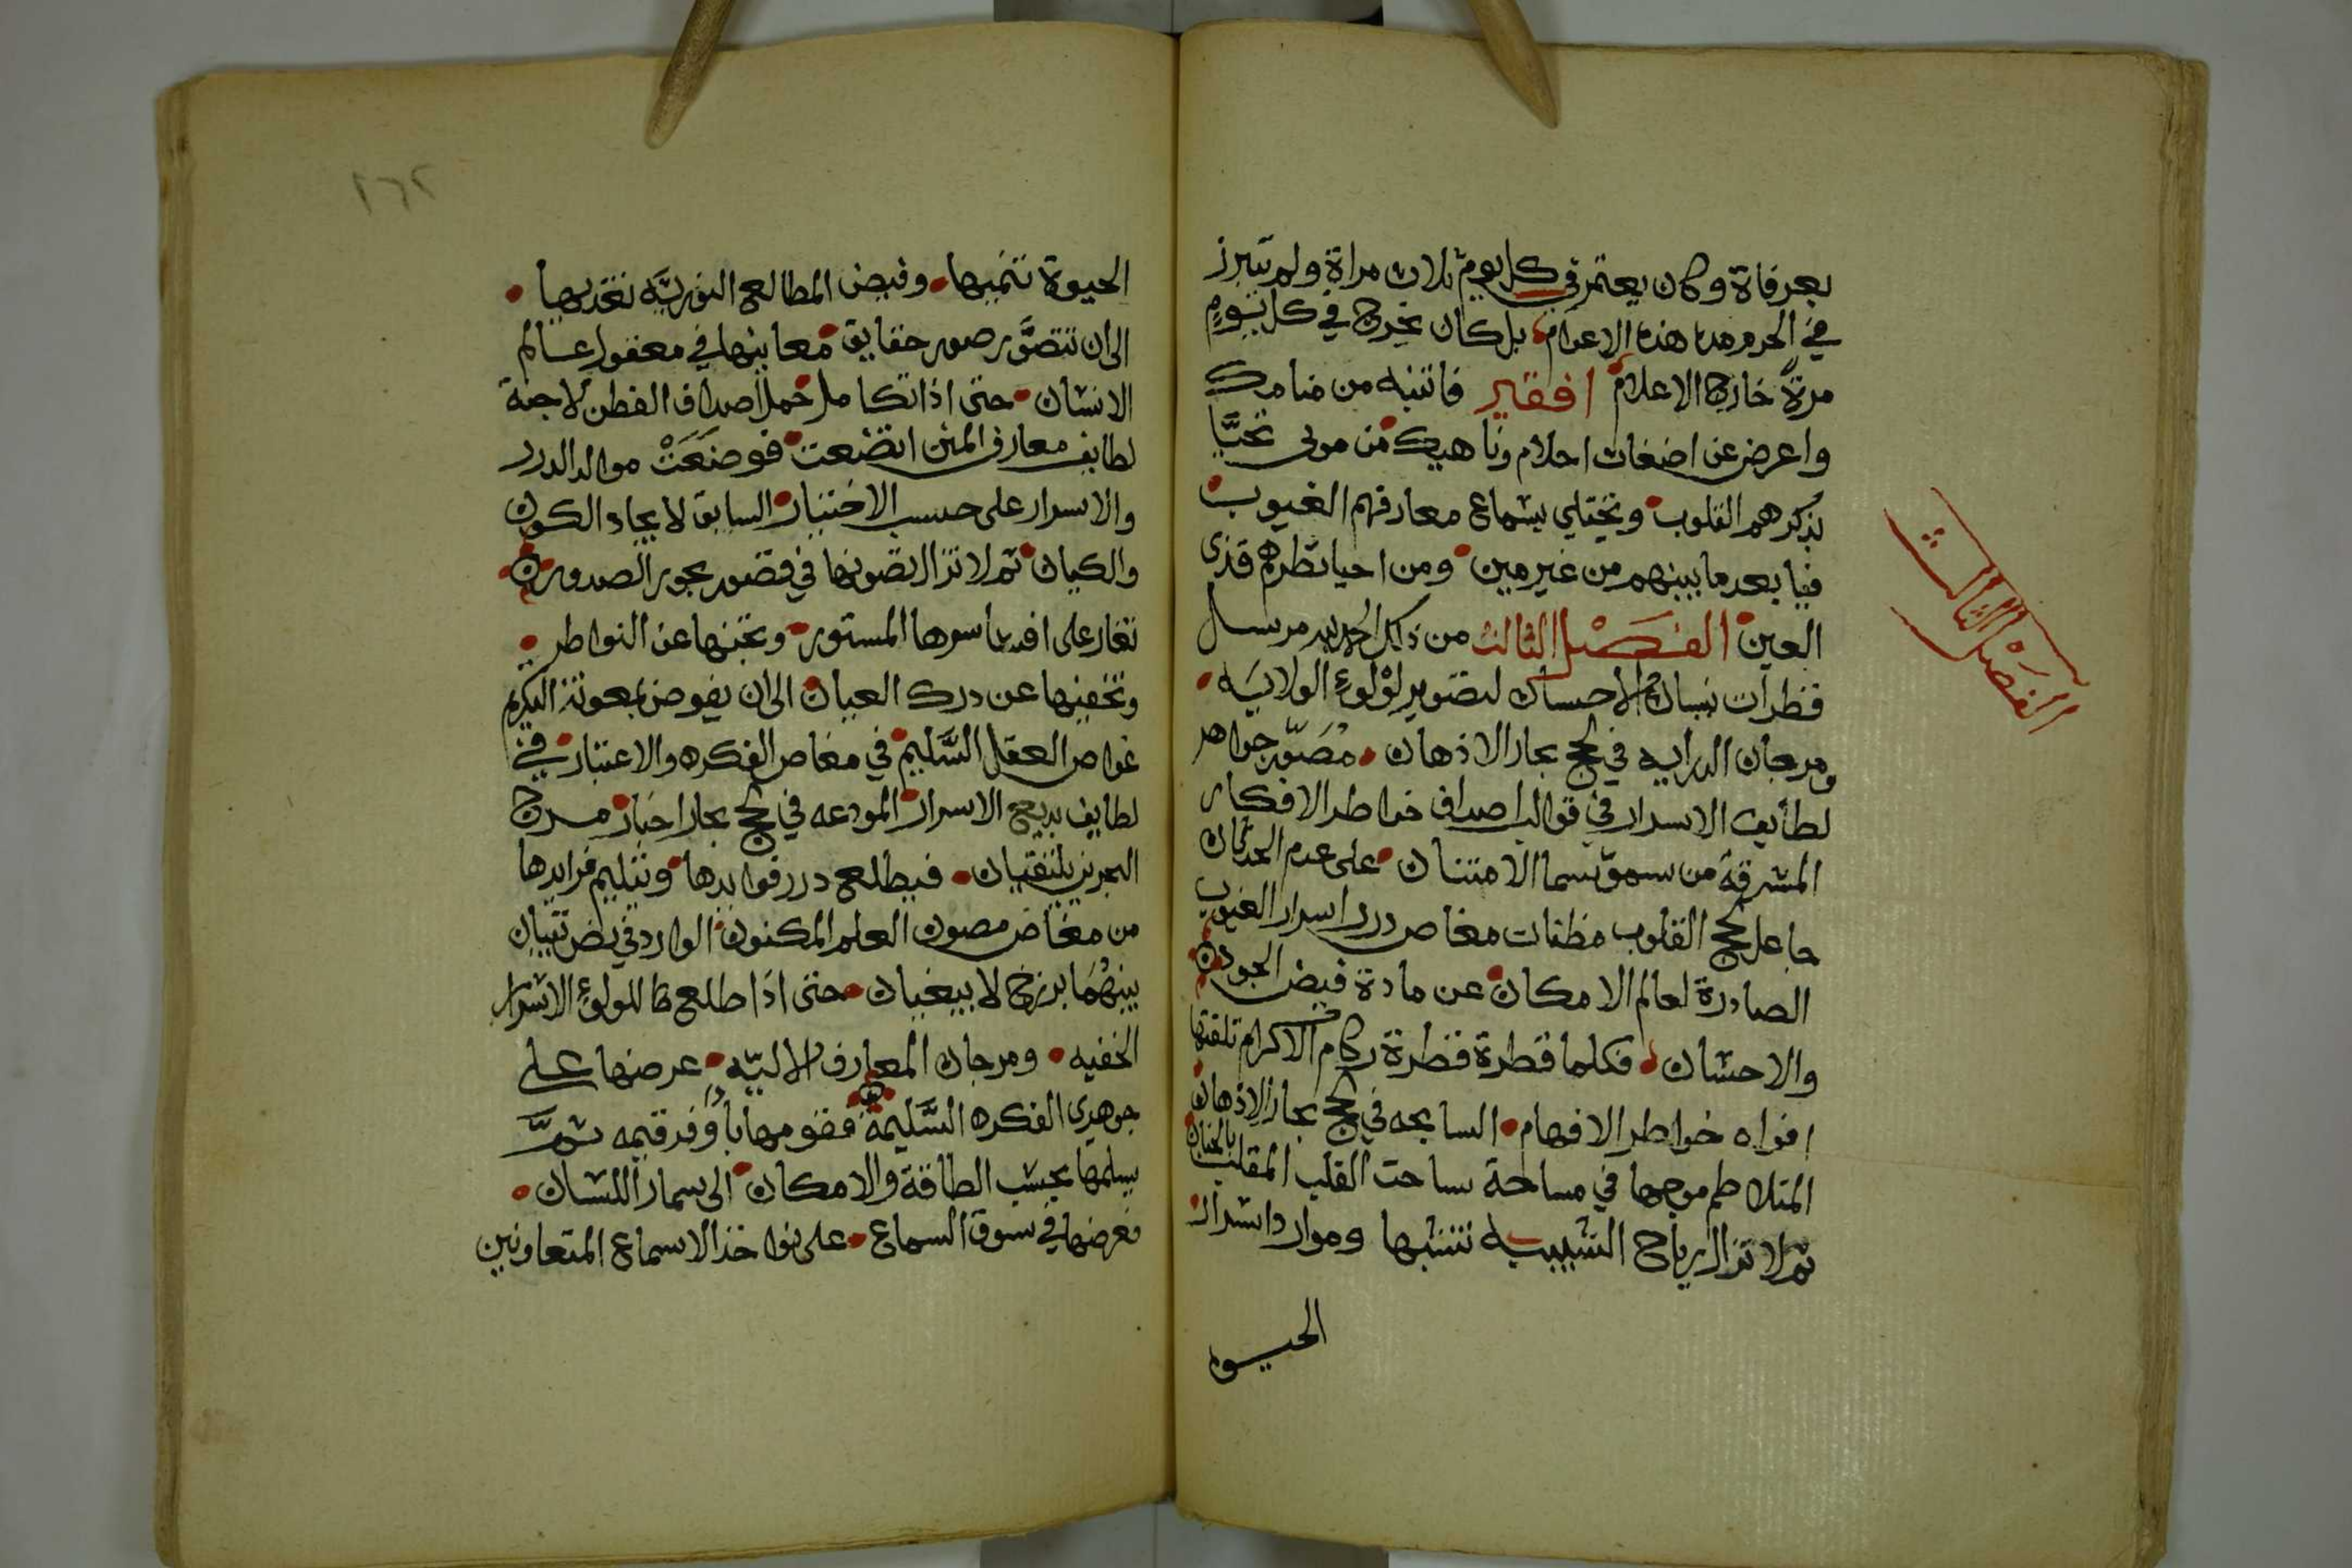 بعرفاة وكان يعتمر في كل يوم ثلاث مراة ولم يتبرز
في الحرم مدة هذه الاعوام بل كان يخرج في كل يوم
مرة خارج الاعلام افقير فانتبه من منامك
واعرض عن اضغاث احلام وناهيك من مولى تحيا
بذكرهم القلوب وتجتلي بسماع معارفهم الغيوب
فيا بعد ما بينهم من غير مين ومن احيا نظرهم قذى
العين الفصل الثالث من ذلك الحمد لله مرسل
قطرات نيسان الاحسان لتصوير لؤلوء الولايه
ومرجان الدرايه في لجج بحار الاذهان مصور جواهر
لطايف الاسرار في قوالب اصداف خواطر الافكار
المشرقة من سمو سما الامتنان على عدم الحدثان
جاعل لجج القلوب مظنات مغاص درر اسرار الغيوب
الصادرة لعالم الامكان عن مادة فيض الجود
والاحسان فكلما قطرة قطرة ركام الاكرام تلقتها
افواه خواطر الافهام السابحه في لجج بحار الاذهان
المتلاطم موجها في مساحة ساحت القلب المقلب بالحنان
ثم لا تزال رياح التشبيب تنشيها وموارد اشراب
الحيوة
الفصل الثالث
٢٦٢
الحيوة تنميها وفيض المطالع النوريه تغذيها
الى ان تتصور صور حقايق معانيها في معقول عالم
الانسان حتى اذا تكامل حمل اصداف الفطن لاجنة
لطايف معارف المنن اتضعت فوضعت موالد الدرر
والاسرار على حسب الاختيار السابق لايجاد الكون
والكيان ثم لا تزال تصونها في قصور بحور الصدور
تغار على افشا سرها المستور وتجنها عن النواظر
وتخفيها عن درك العيان الى ان يفوض بمعونة الكريم
غواص العقل السليم في مغاص الفكره والاعتبار في
لطايف بديع الاسرار المودعه في لجج بحار اخبار مرج
البحرين يلتقيان فيطلع درر فوايدها ويتيم فرايدها
من مغاص مصون العلم المكنون الوارد في نص تبيان
بينهما برزخ لا يبغيان حتى اذا طلع طا للولوء الاسرار
الخفيه ومرجان المعارف الاليه عرضها على
جوهري الفكره السليمة فقومها باوفر قيمه ثم
يسلمها بحسب الطاقة والامكان الى سمار اللسان
فعرضها في سوق السماع على نواخذ الاسماع المتعاونين